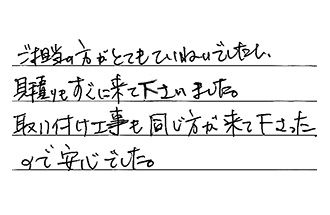 ご担当の方がとてもていねいでしたし、
見積りもすぐに来て下さいました。
取り付け工事も同じ方が来て下さった
ので安心でした。